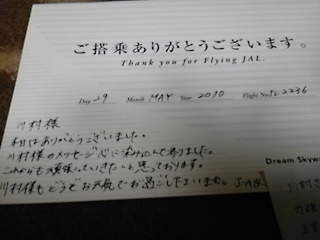 ご搭乗ありがとうございます。
Thank you for Flying JAL.
Day 29 Month MAY Year 2010 Flight No. JL 2236
川村様
本日はありがとうございました。
川村様のメッセージ心に染み込んで参りました。
これからも頑張っていきたいと思っております。
川村様もどうぞお元気でお過ごしくださいませ。 JAL
Dream Skyw
川村さ
ます